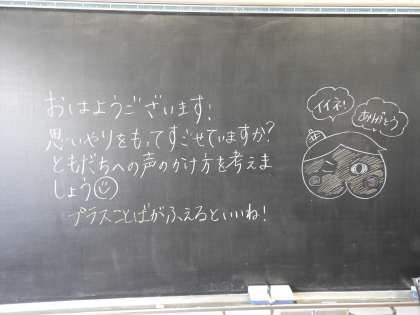 おはようございます!
思いやりをもってすごせていますか?
ともだちへの声のかけ方を考えま
しょう
プラスことばがふえるといいね!
イイネ!
ありがとう